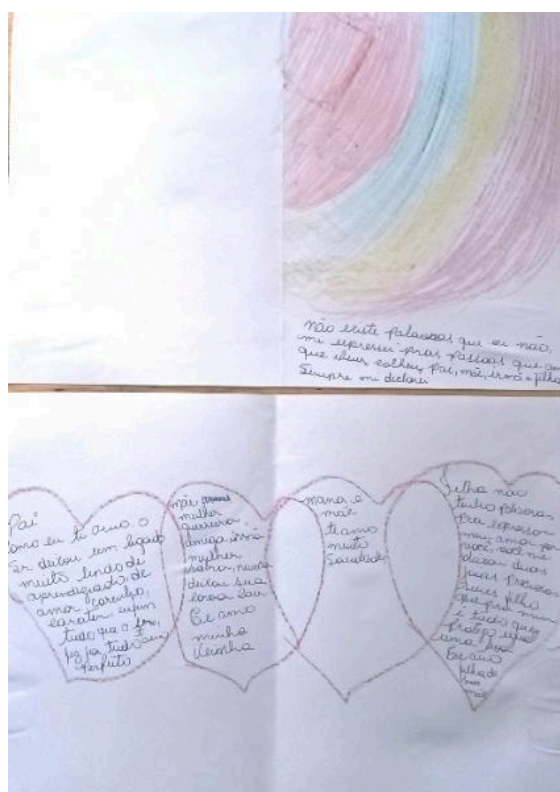 não existe palavras que eu não,
mi expressei pras passoas que
que Deus colheu, Pai, mãe, irmã e filha
Sempre mi declarei
Pai
como eu ti amo o
Sr deitou um legado
muito lindo de
aprendizado, de
amor carinho,
carater, enfim
tudo que o Sr,
fez foi, tudo
Perfeito
mãe
mulher
guerreira,
amiga, irmã
mulher
sabia, nunca
deitou sua
coroa cair
Te amo
minha
mana e
mãe
te amo
muito
Saudade
Filha não
tenho palavra
Pra expressar
meu amor por
você, você me
deixou duas
joias preciosas
seus filho
que pra mim
é tudo que
Te amo
filha de
mãe